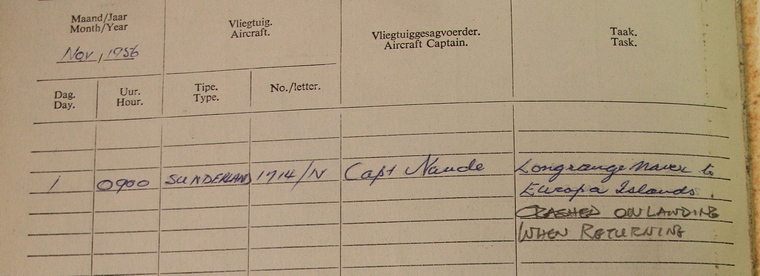 Maand/Jaar
Month/Year
Nov, 1956
Vliegtuig.
Aircraft.
Vliegtuiggesagvoerder.
Aircraft Captain.
Taak.
Task.
Dag.
Day.
Uur.
Hour.
Tipe.
Type.
No./letter.
1 0900 SUNDERLAND 1714/N Capt Naude Longrange Navex to
Europa Islands.
CRASHED ON LANDING
WHEN RETURNING